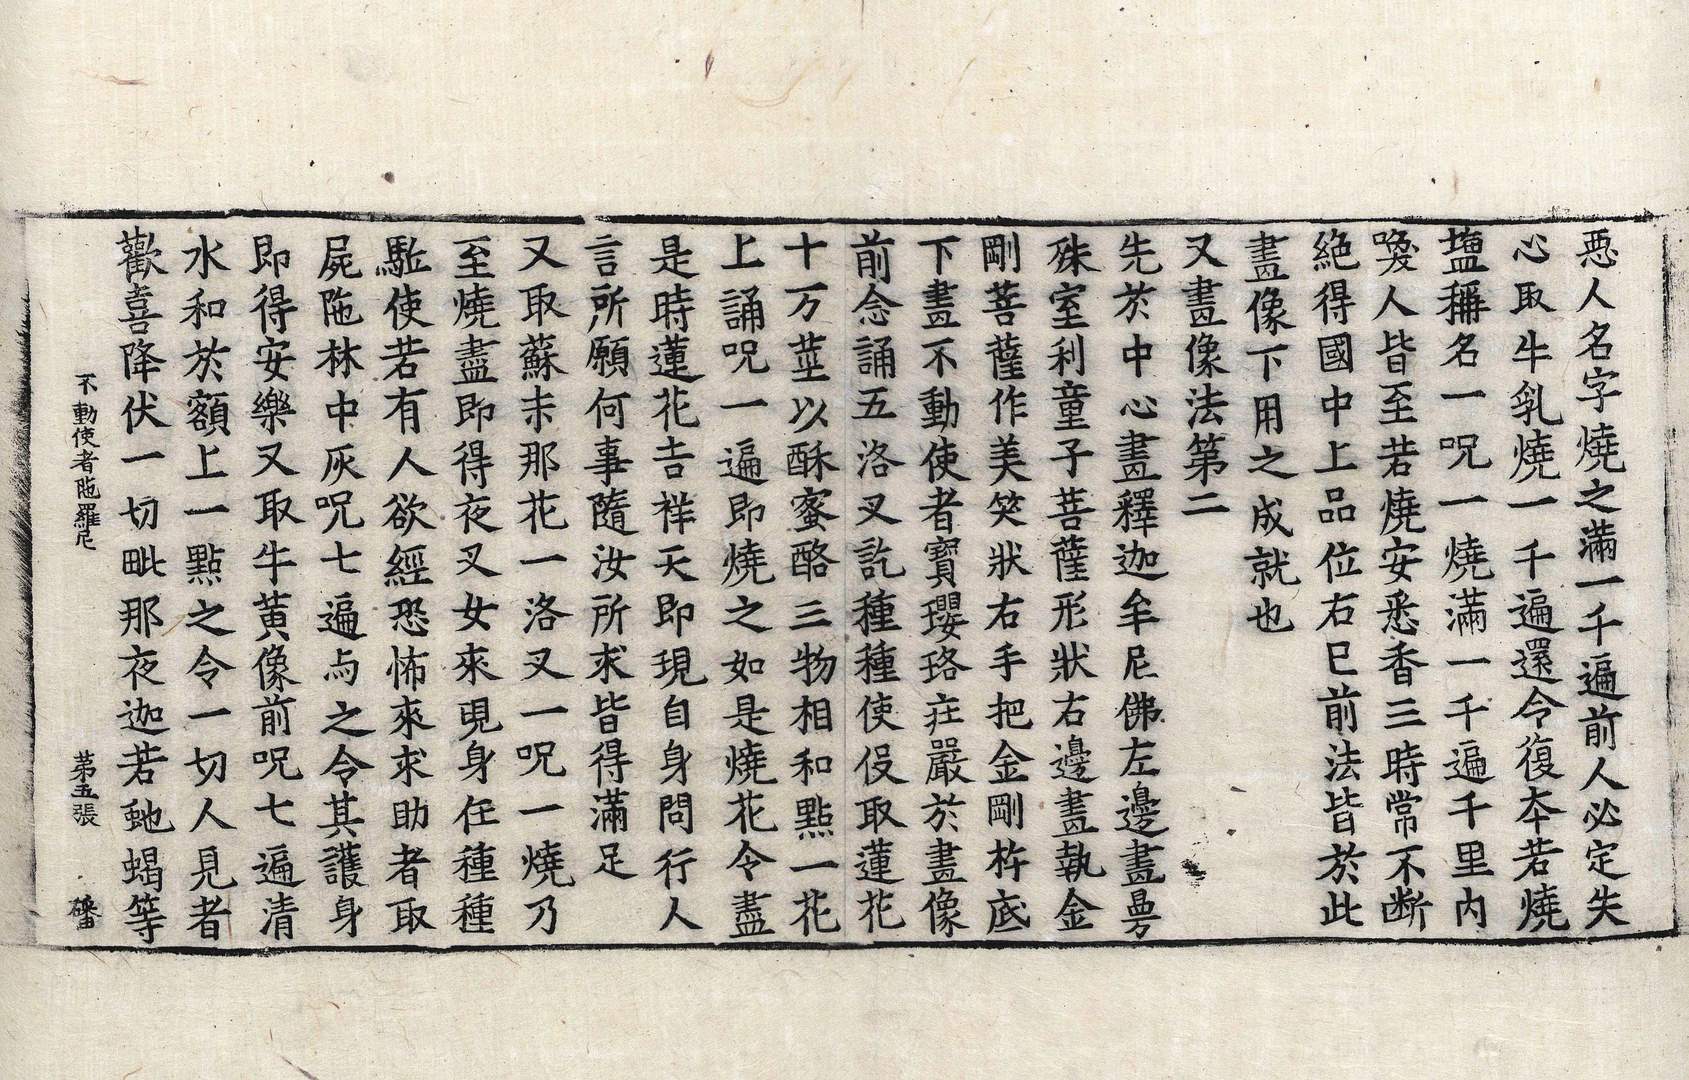 悪人名字燒之滿一千遍前人必定失
心取牛乳燒一千遍還令復夲若燒
塩稱名一呪一燒滿一千遍千里内
喚人皆至若燒安悉香三時常不断
絶得國中上品位右巳前法皆於此
畫像下用之成就也
又畫像法第二
先於中心畫釋迦牟尼佛左邊畫曼
殊室利童子菩薩形狀右邊畫執金
剛菩薩作美笑狀右手把金剛杵底
下畫不動使者寶瓔珞庄嚴於畫像
前念誦五洛叉訖種種使伇取蓮花
十万莖以酥蜜酪三物相和點一花
上誦呪一遍即燒之如是燒花令盡
是時蓮花吉祥天即現自身問行人
言所願何事隨汝所求皆得滿足
又取蘇末那花一洛叉一呪一燒乃
至燒盡即得夜叉女來現身任種種
駈使若有人欲經恐怖來求助者取
屍陁林中灰呪七遍与之令其護身
即得安樂又取牛黄像前呪七遍清
水和於額上一點之令一切人見者
歡喜降伏一切毗那夜迦若虵蝎等
不動使者陁羅尼 苐五張 磻